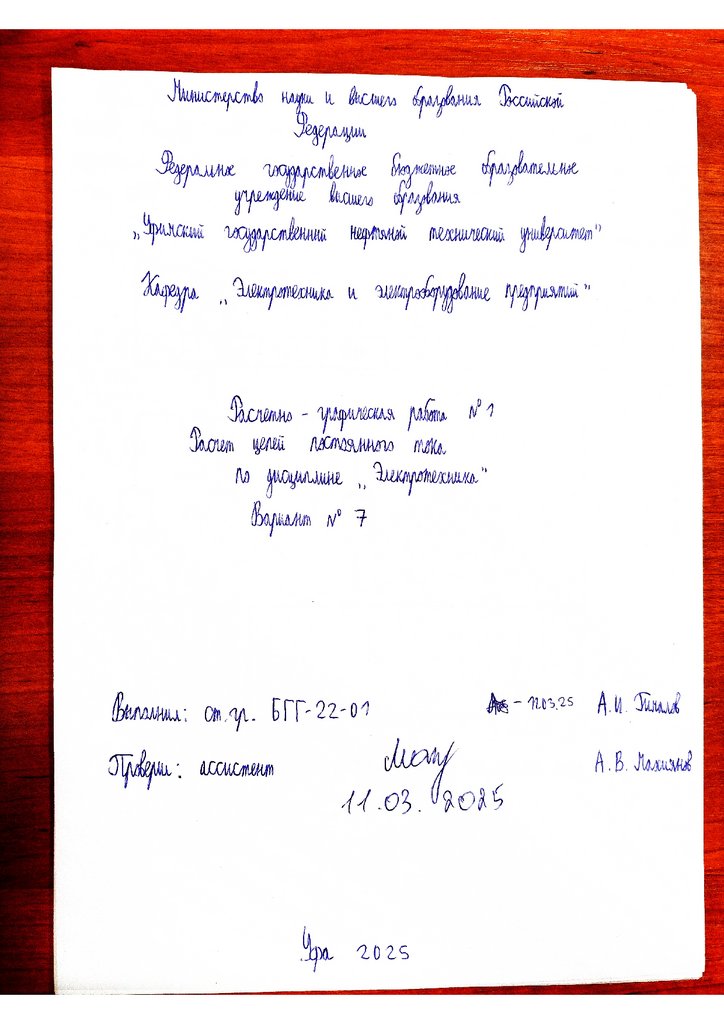 Министерство науки и высшего образования Российской
Федерации
Федеральное государственное бюджетное образовательное
учреждение высшего образования
„Уфимский государственный нефтяной технический университет"
Кафедра „Электротехника и электрооборудование предприятий"
Расчетно - графическая работа № 1
Расчет цепей постоянного тока
по дисциплине „Электротехника"
Вариант № 7
Выполнил: ст. гр. БГГ-22-01 А.И.
Проверил: ассистент А.В.
11.03.2025
Уфа 2025